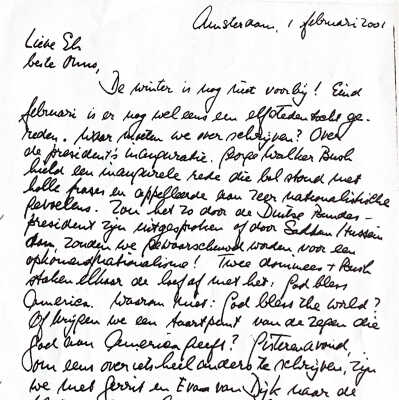 Amsterdam, 1 februari 2001
Lieve Els
beste Onno,
De winter is nog niet voorbij! Eind
februari is er nog wel eens een elfstedentocht ge-
reden. Waar moeten we over schrijven? Over
de president's inauguratie. George Walker Bush
hield een inaugurele rede die bol stond met
holle frases en appelleerde aan zeer nationalistische
gevoelens. Zou het zo door de Duitse Bundes-
president zijn uitgesproken of door Saddam Hussein
dan zouden we gewaarschuwd worden voor een
opkomend nationalisme! Twee dominees + Bush
staken elkaar de loef af met het: God bless
America. Waarom niet: God bless the world?
Of krijgen we een taartpunt van de zegen die
God aan America geeft? Gisteravond,
om eens over iets heel anders te schrijven, zijn
we met Gerrit en Eva van Dijk naar de